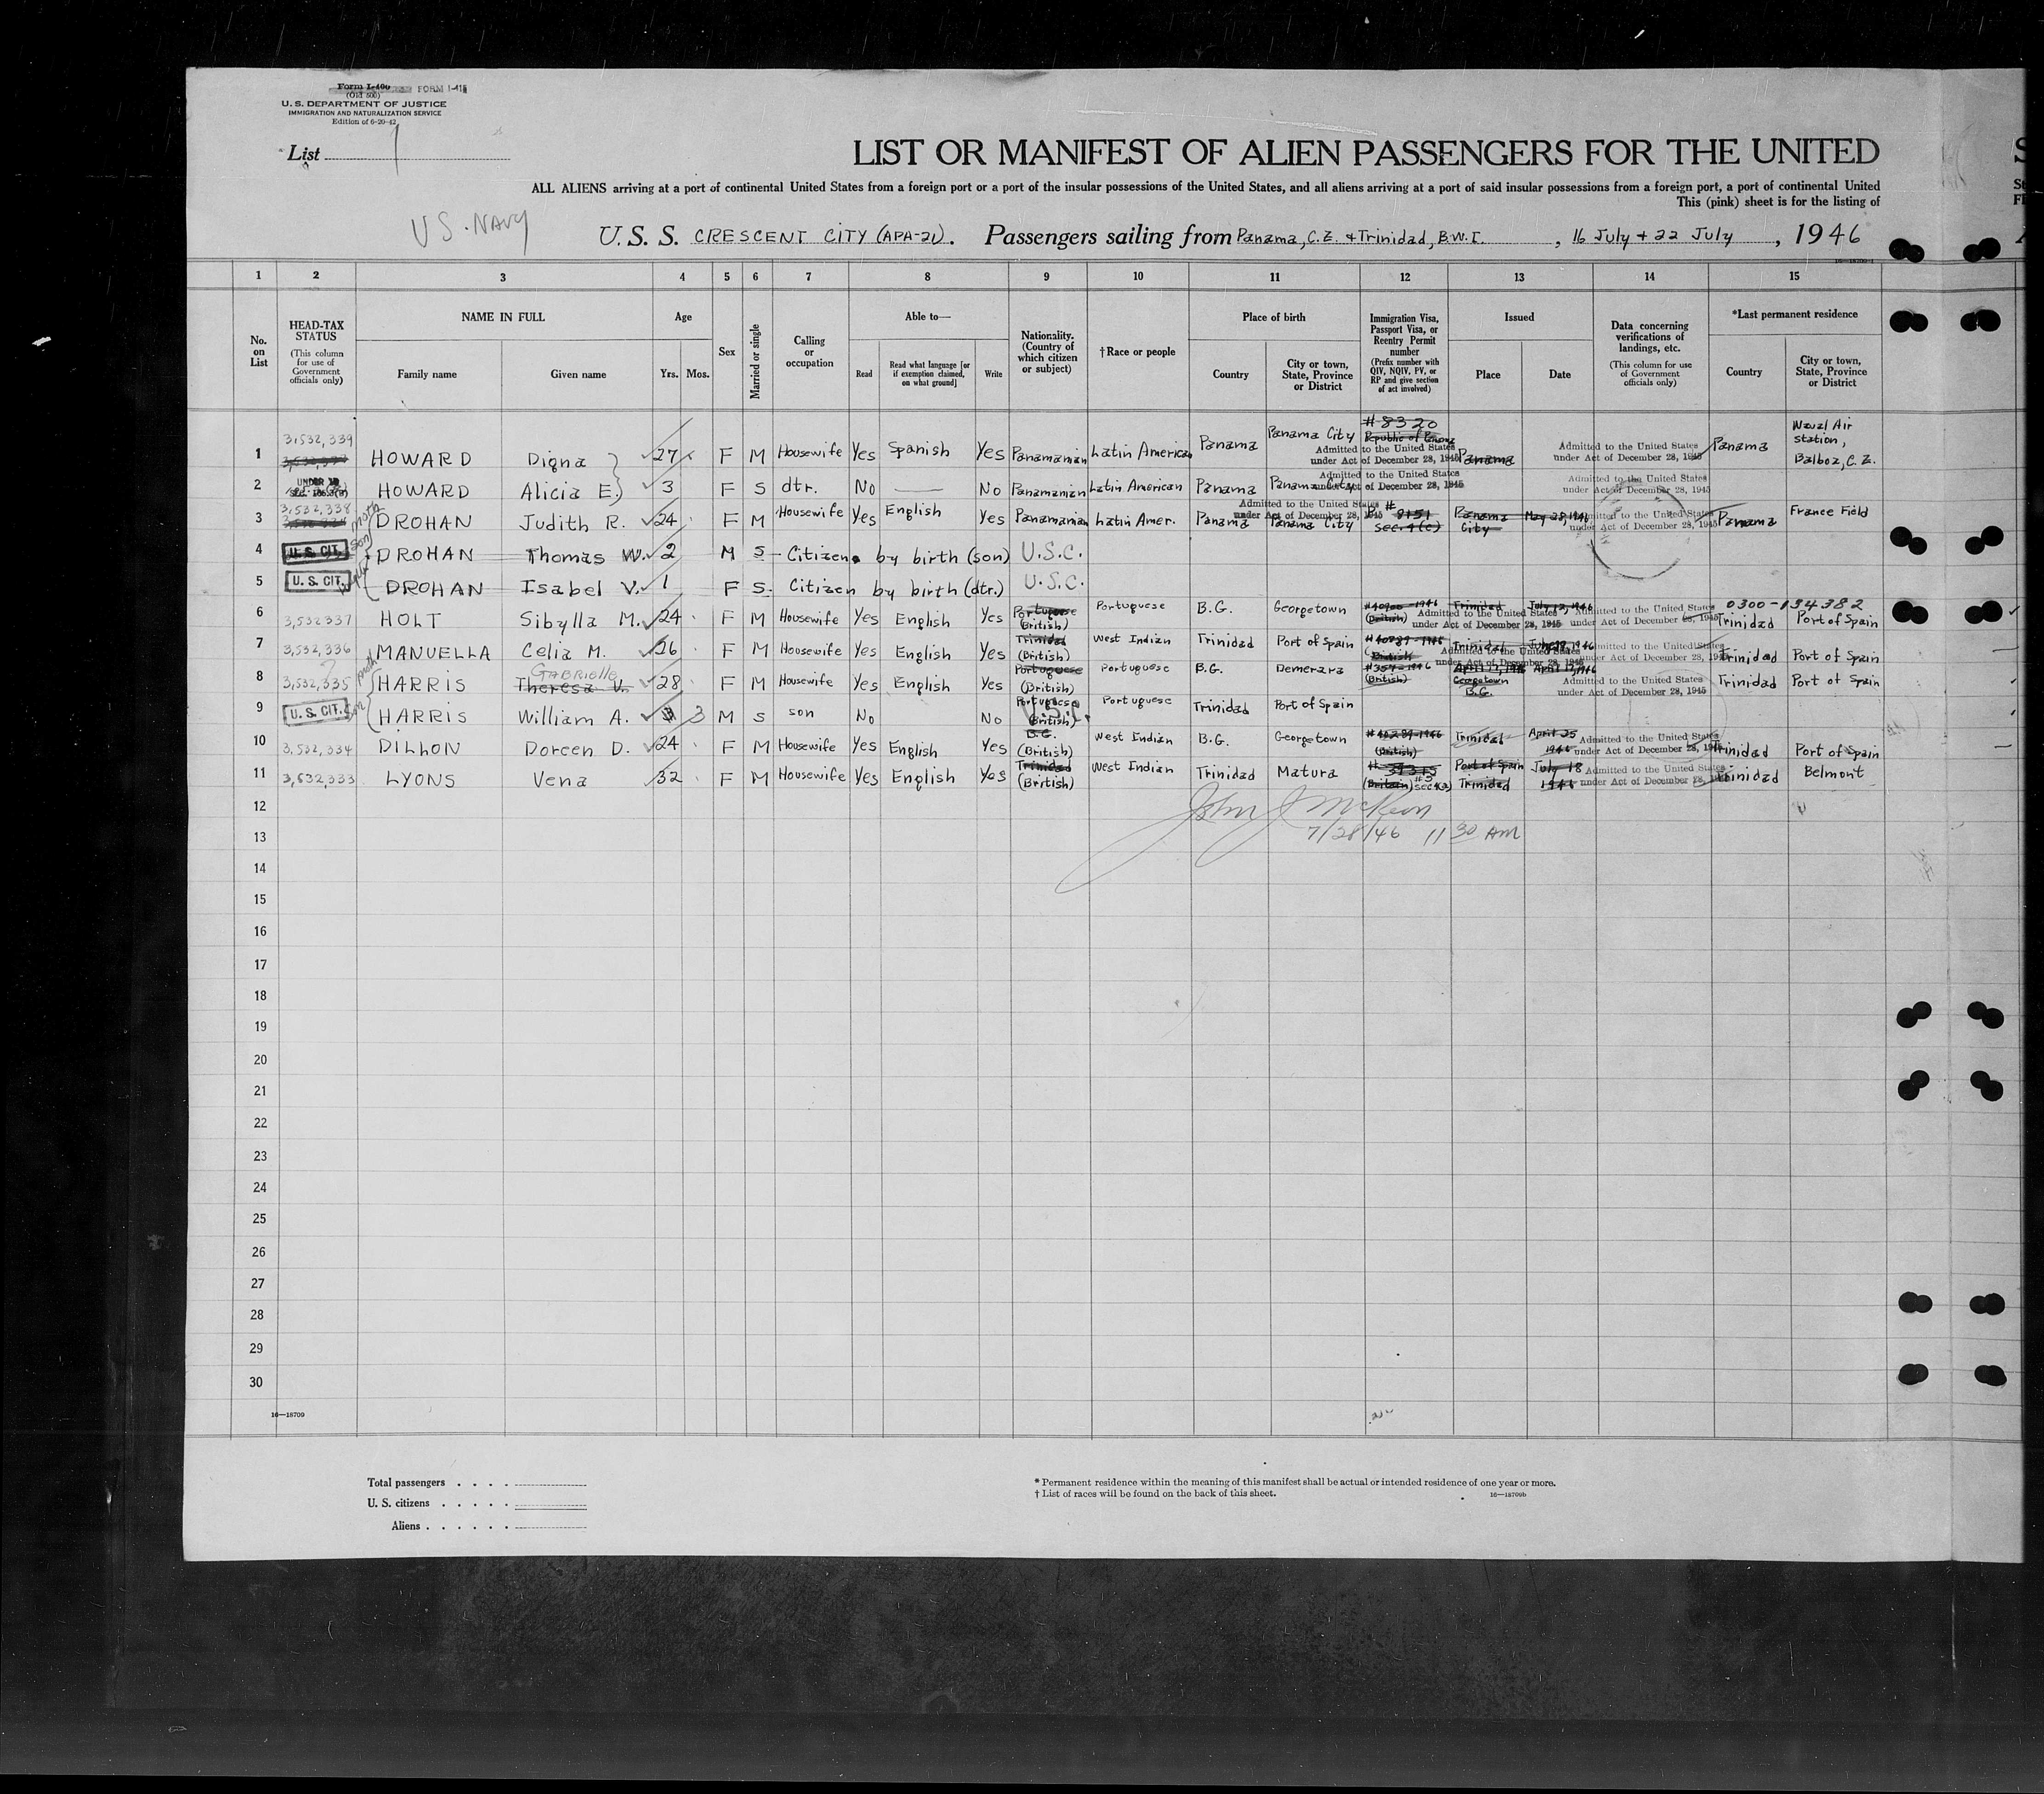 Form I-400 FORM I-415
(Old 500)
U. S. DEPARTMENT OF JUSTICE
IMMIGRATION AND NATURALIZATION SERVICE
Edition of 6-20-42
List 1
LIST OR MANIFEST OF ALIEN PASSENGERS FOR THE UNITED
ALL ALIENS arriving at a port of continental United States from a foreign port or a port of the insular possessions of the United States, and all aliens arriving at a port of said insular possessions from a foreign port, a port of continental United
This (pink) sheet is for the listing of
U S. NAVY
U.S.S. CRESCENT CITY (APA-21). Passengers sailing from Panama, C.Z. + Trinidad, B.W.I. , 16 July + 22 July , 1946
1 2 3 4 5 6 7 8 9 10 11 12 13 14 15
No. on List
HEAD-TAX STATUS (This column for use of Government officials only)
NAME IN FULL Family name Given name
Age Yrs. Mos.
Sex
Married or single
Calling or occupation
Able to— Read Read what language [or if exemption claimed, on what ground] Write
Nationality. (Country of which citizen or subject)
†Race or people
Place of birth Country City or town, State, Province or District
Immigration Visa, Passport Visa, or Reentry Permit number (Prefix number with QIV, NQIV, PV, or RP and give section of act involved)
Issued Place Date
Data concerning verifications of landings, etc. (This column for use of Government officials only)
*Last permanent residence Country City or town, State, Province or District
1 3,532,339 HOWARD Digna 27 F M Housewife Yes Spanish Yes Panamanian Latin American Panama Panama City #8320 Republic of Panama Admitted to the United States under Act of December 28, 1945 Panama Admitted to the United States under Act of December 28, 1945 Panama Naval Air Station, Balboa, C.Z.
2 UNDER 16 HOWARD Alicia E. 3 F S dtr. No — No Panamanian Latin American Panama Panama City Admitted to the United States under Act of December 28, 1945 Admitted to the United States under Act of December 28, 1945
3 3,532,338 DROHAN Judith R. 24 F M Housewife Yes English Yes Panamanian Latin Amer. Panama Panama City Admitted to the United States under Act of December 28, 1945 # 8151 Sec. 4(c) Panama City May 28, 1946 Admitted to the United States under Act of December 28, 1945 Panama France Field
4 U. S. CIT. son DROHAN Thomas W. 2 M S Citizen by birth (son) U.S.C.
5 U. S. CIT. DROHAN Isabel V. 1 F S. Citizen by birth (dtr.) U.S.C.
6 3,532,337 HOLT Sibylla M. 24 F M Housewife Yes English Yes Portuguese (British) Portuguese B.G. Georgetown (British) Admitted to the United States under Act of December 28, 1945 Trinidad July 12, 1946 Admitted to the United States under Act of December 28, 1945 0300-134382 Trinidad Port of Spain
7 3,532,336 MANUELLA Celia M. F M Housewife Yes English Yes Trinidad (British) West Indian Trinidad Port of Spain British Admitted to the United States under Act of December 28, 1945 Trinidad Admitted to the United States under Act of December 28, 1945 Trinidad Port of Spain
8 3,532,335 HARRIS Theresa V. GABRIELLE 28 F M Housewife Yes English Yes Portuguese (British) Portuguese B.G. Demerara (British) Georgetown B.G. April 17, 1946 Admitted to the United States under Act of December 28, 1945 Trinidad Port of Spain
9 U. S. CIT. son HARRIS William A. 3 M S son No No Portuguese (British) U.S.C. Portuguese Trinidad Port of Spain
10 3,532,334 DILLON Doreen D. 24 F M Housewife Yes English Yes B.G. (British) West Indian B.G. Georgetown (British) Trinidad April 25 1946 Admitted to the United States under Act of December 28, 1945 Trinidad Port of Spain
11 3,532,333 LYONS Vena 32 F M Housewife Yes English Yes Trinidad (British) West Indian Trinidad Matura (Britain) Port of Spain Trinidad July 18 1946 Admitted to the United States under Act of December 28, 1945 Trinidad Belmont
12
John J McKeon
13
7/28/46 11 30 AM
14
15
16
17
18
19
20
21
22
23
24
25
26
27
28
29
30
16—18709
Total passengers
U. S. citizens
Aliens
* Permanent residence within the meaning of this manifest shall be actual or intended residence of one year or more.
† List of races will be found on the back of this sheet.
16—18709b